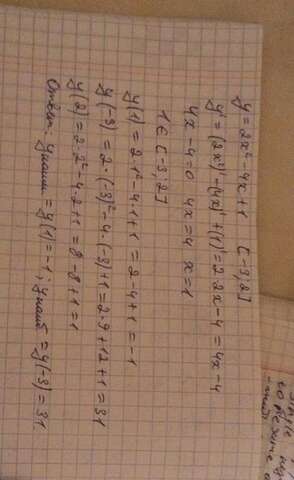 y = 2x² - 4x + 1 [-3; 2]
y' = (2x²)' - (4x)' + (1)' = 2·2x - 4 = 4x - 4
4x - 4 = 0 4x = 4 x = 1
1 ∈ [-3; 2]
y(1) = 2·1² - 4·1 + 1 = 2 - 4 + 1 = -1
y(-3) = 2·(-3)² - 4·(-3) + 1 = 2·9 + 12 + 1 = 31
y(2) = 2·2² - 4·2 + 1 = 8 - 8 + 1 = 1
Ответ: yнаим = y(1) = -1; yнаиб = y(-3) = 31.